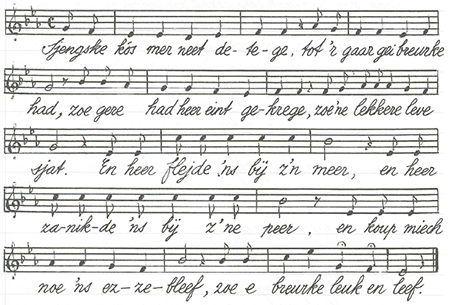 Sjengske kós mer neet de-te-ge, tot 'r gaar gei breurke
had, zoe gere had heer eint ge-krege, zoe'ne lekkere leve
sjat. En heer flejde 'ns bij z'n meer, en heer
za-nik-de 'ns bij z'ne peer, en koup miech
noe 'ns ez-ze-bleef, zoe e breurke leuk en leef.